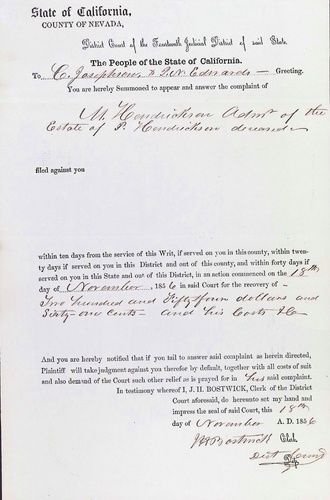 State of California,
COUNTY OF NEVADA,
District Court of the Fourteenth Judicial District of said State.
The People of the State of California.
To C. Josephson & P. W. Edwards — Greeting.
You are hereby Summoned to appear and answer the complaint of
M. Hendrickson Admr of the
Estate of P. Hendrickson deceased
filed against you
within ten days from the service of this Writ, if served on you in this county, within twen-
ty days if served on you in this District and out of this county, and within forty days if
served on you in this State and out of this District, in an action commenced on the 18th
day of November, 1856 in said Court for the recovery of —
Two hundred and Fifty four dollars and
Sixty-one cents — and his Costs &c
And you are hereby notified that if you fail to answer said complaint as herein directed,
Plaintiff will take judgment against you therefor by default, together with all costs of suit
and also demand of the Court such other relief as is prayed for in his said complaint.
In testimony whereof I, J. H. BOSTWICK, Clerk of the District
Court aforesaid, do hereunto set my hand and
impress the seal of said Court, this 18th
day of November A. D. 1856
J H Bostwick Clerk.
Dist Court